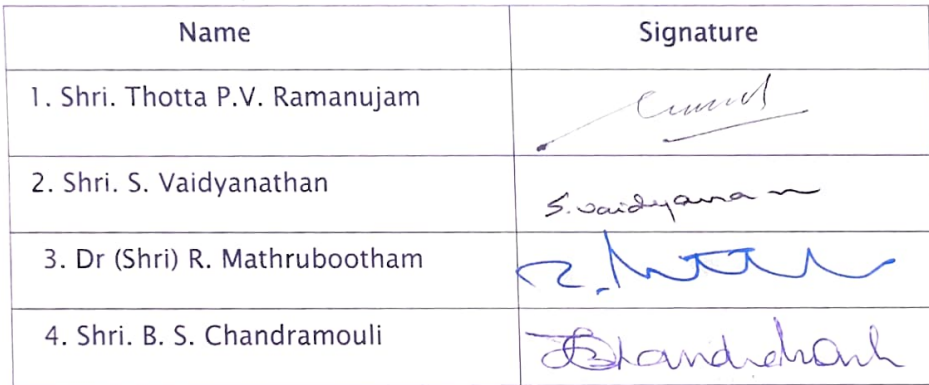 Name Signature
1. Shri. Thotta P.V. Ramanujam
2. Shri. S. Vaidyanathan S. Vaidyana
3. Dr (Shri) R. Mathrubootham
4. Shri. B. S. Chandramouli